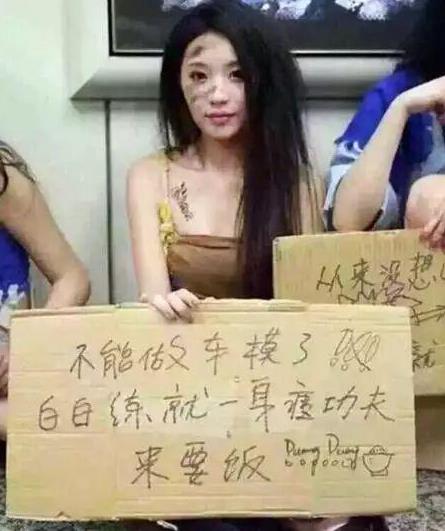 不能做车模了
白白练就一身瘪功夫
来要饭 Duang Duang
从来没想
就